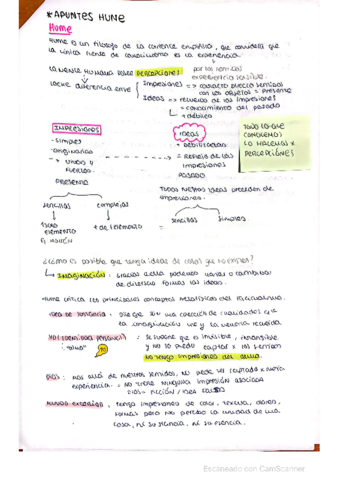 * APUNTES HUME
Hume
HUME es un filósofo de la corriente empirista, que considera que
la única fuente de conocimiento es la experiencia.
por los sentidos
La mente humana recibe PERCEPCIONES
experiencia posible.
impresiones => contacto directo sentidos
con los objetos = Presente
ideas => recuerdo de las impresiones
= conocimiento del pasado
+ débiles
IMPRESIONES
- simples
- originarias
+ vivas y
fuertes.
PRESENTE
IDEAS
+ debilitadas
= reflejo de las
impresiones
PASADO
TODO LO QUE
CONOCEMOS
LO HACEMOS X
PERCEPCIONES
Todas nuestras ideas proceden de
impresiones.
sencillas
complejas
elemento
+ de 1 elemento
sencillas
simples
¿Cómo es posible que tenga ideas de cosas que no existen?
IMAGINACIÓN: Gracias a ella podemos unir o combinar
de diversas formas las ideas.
Hume critica los principales conceptos metafísicos del racionalismo.
IDEA DE SUSTANCIA: dice que son una colección de cualidades que
la imaginación une y la memoria recuerda.
YO (identidad personal)
"alma"
se supone que es invisible, intangible
y no se puede captar x los sentidos
No tengo impresiones del alma.
DIOS: más allá de nuestros sentidos, no puede ser captado x nuestra
experiencia = No tiene ninguna impresión asociada
DIOS = FICCIÓN / IDEA FALSA
MUNDO EXTERNO: tengo impresiones de color, textura, olores,
formas pero no percibo la unidad de una
cosa, ni su sustancia, ni su esencia.
Escaneado con CamScanner